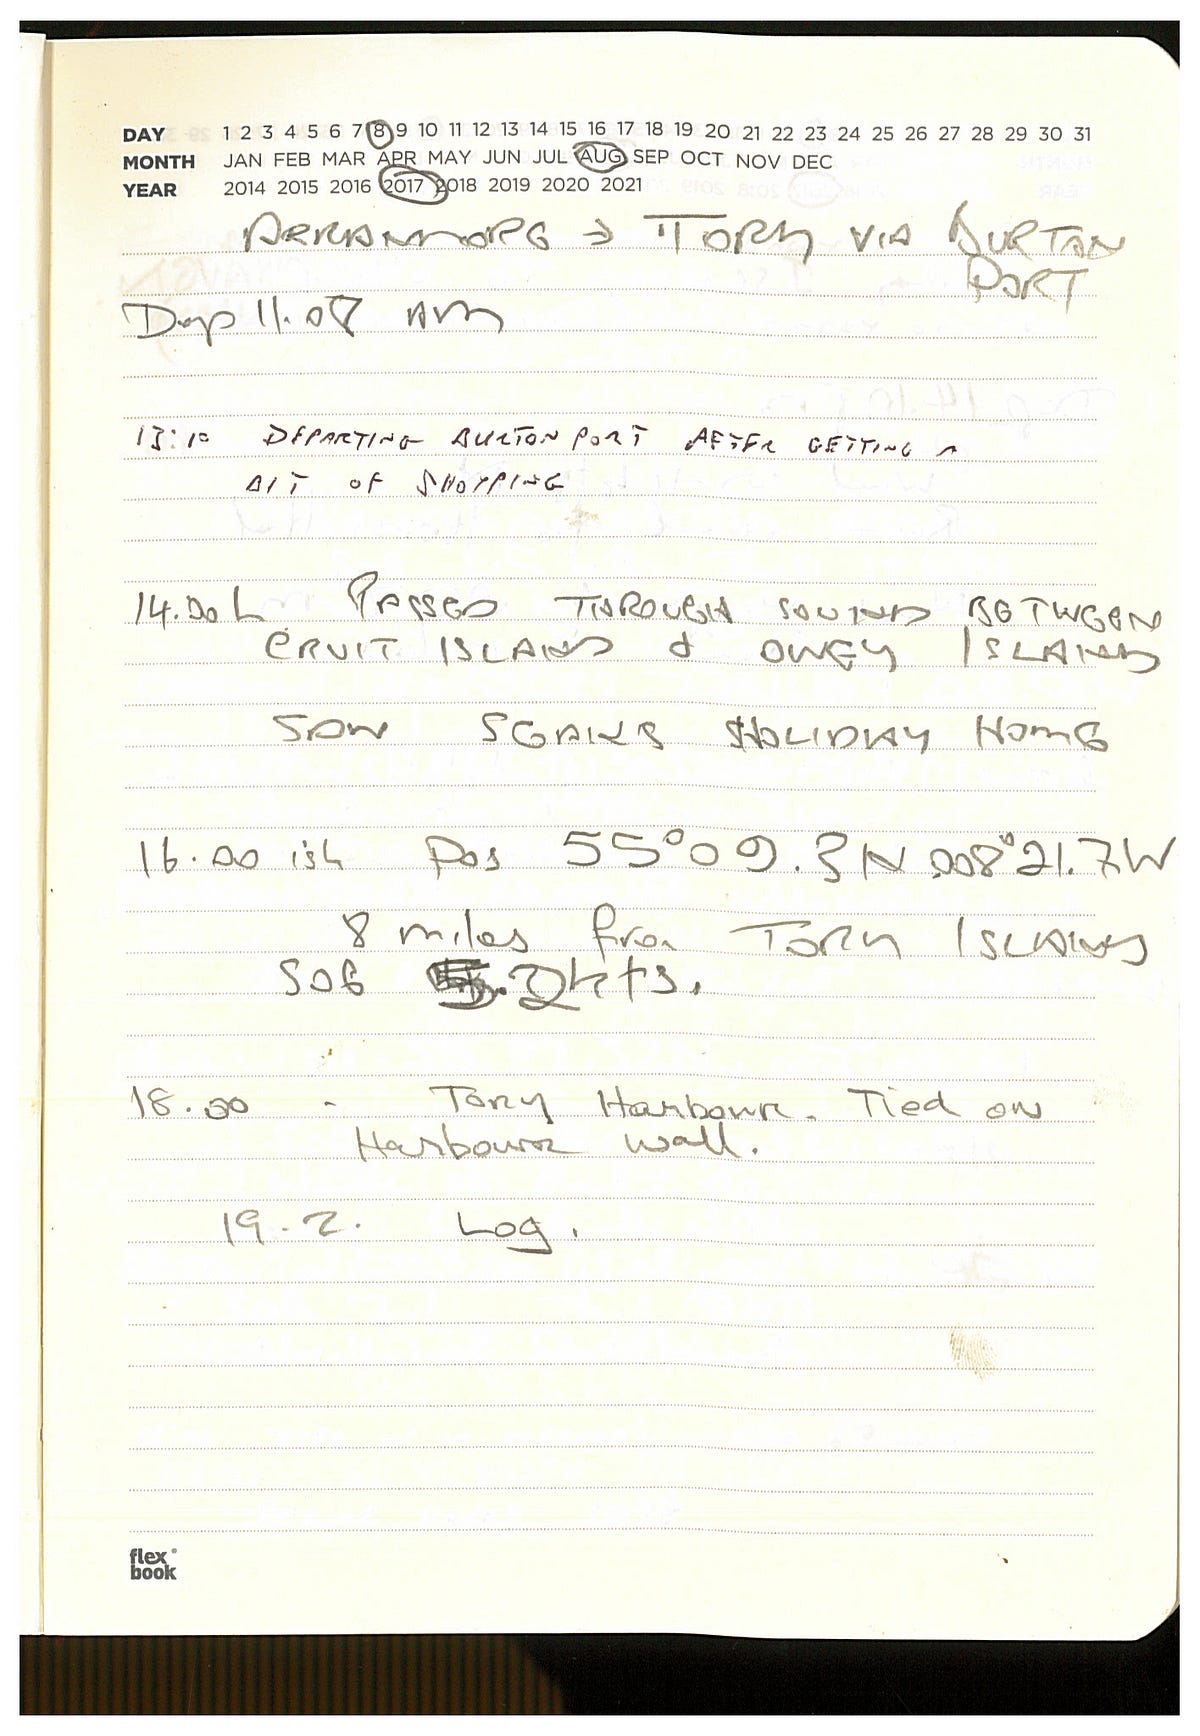 DAY 1 2 3 4 5 6 7 8 9 10 11 12 13 14 15 16 17 18 19 20 21 22 23 24 25 26 27 28 29 30 31
MONTH JAN FEB MAR APR MAY JUN JUL AUG SEP OCT NOV DEC
YEAR 2014 2015 2016 2017 2018 2019 2020 2021
ARRANMORE → TORY VIA BURTON
PORT
Dep 11.07 AM
13:10 DEPARTING BURTONPORT AFTER GETTING A
BIT OF SHOPPING
14.00 h PASSED THROUGH SOUND BETWEEN
CRUIT ISLAND & OWEY ISLAND
SAW HOLIDAY HOME
16.00 ish Pos 55°09.3N 008°21.7W
8 miles from TORY ISLAND
SOG .2kts.
18.00 - Tory Harbour. Tied on
Harbour wall.
19.2. Log.
flex
book